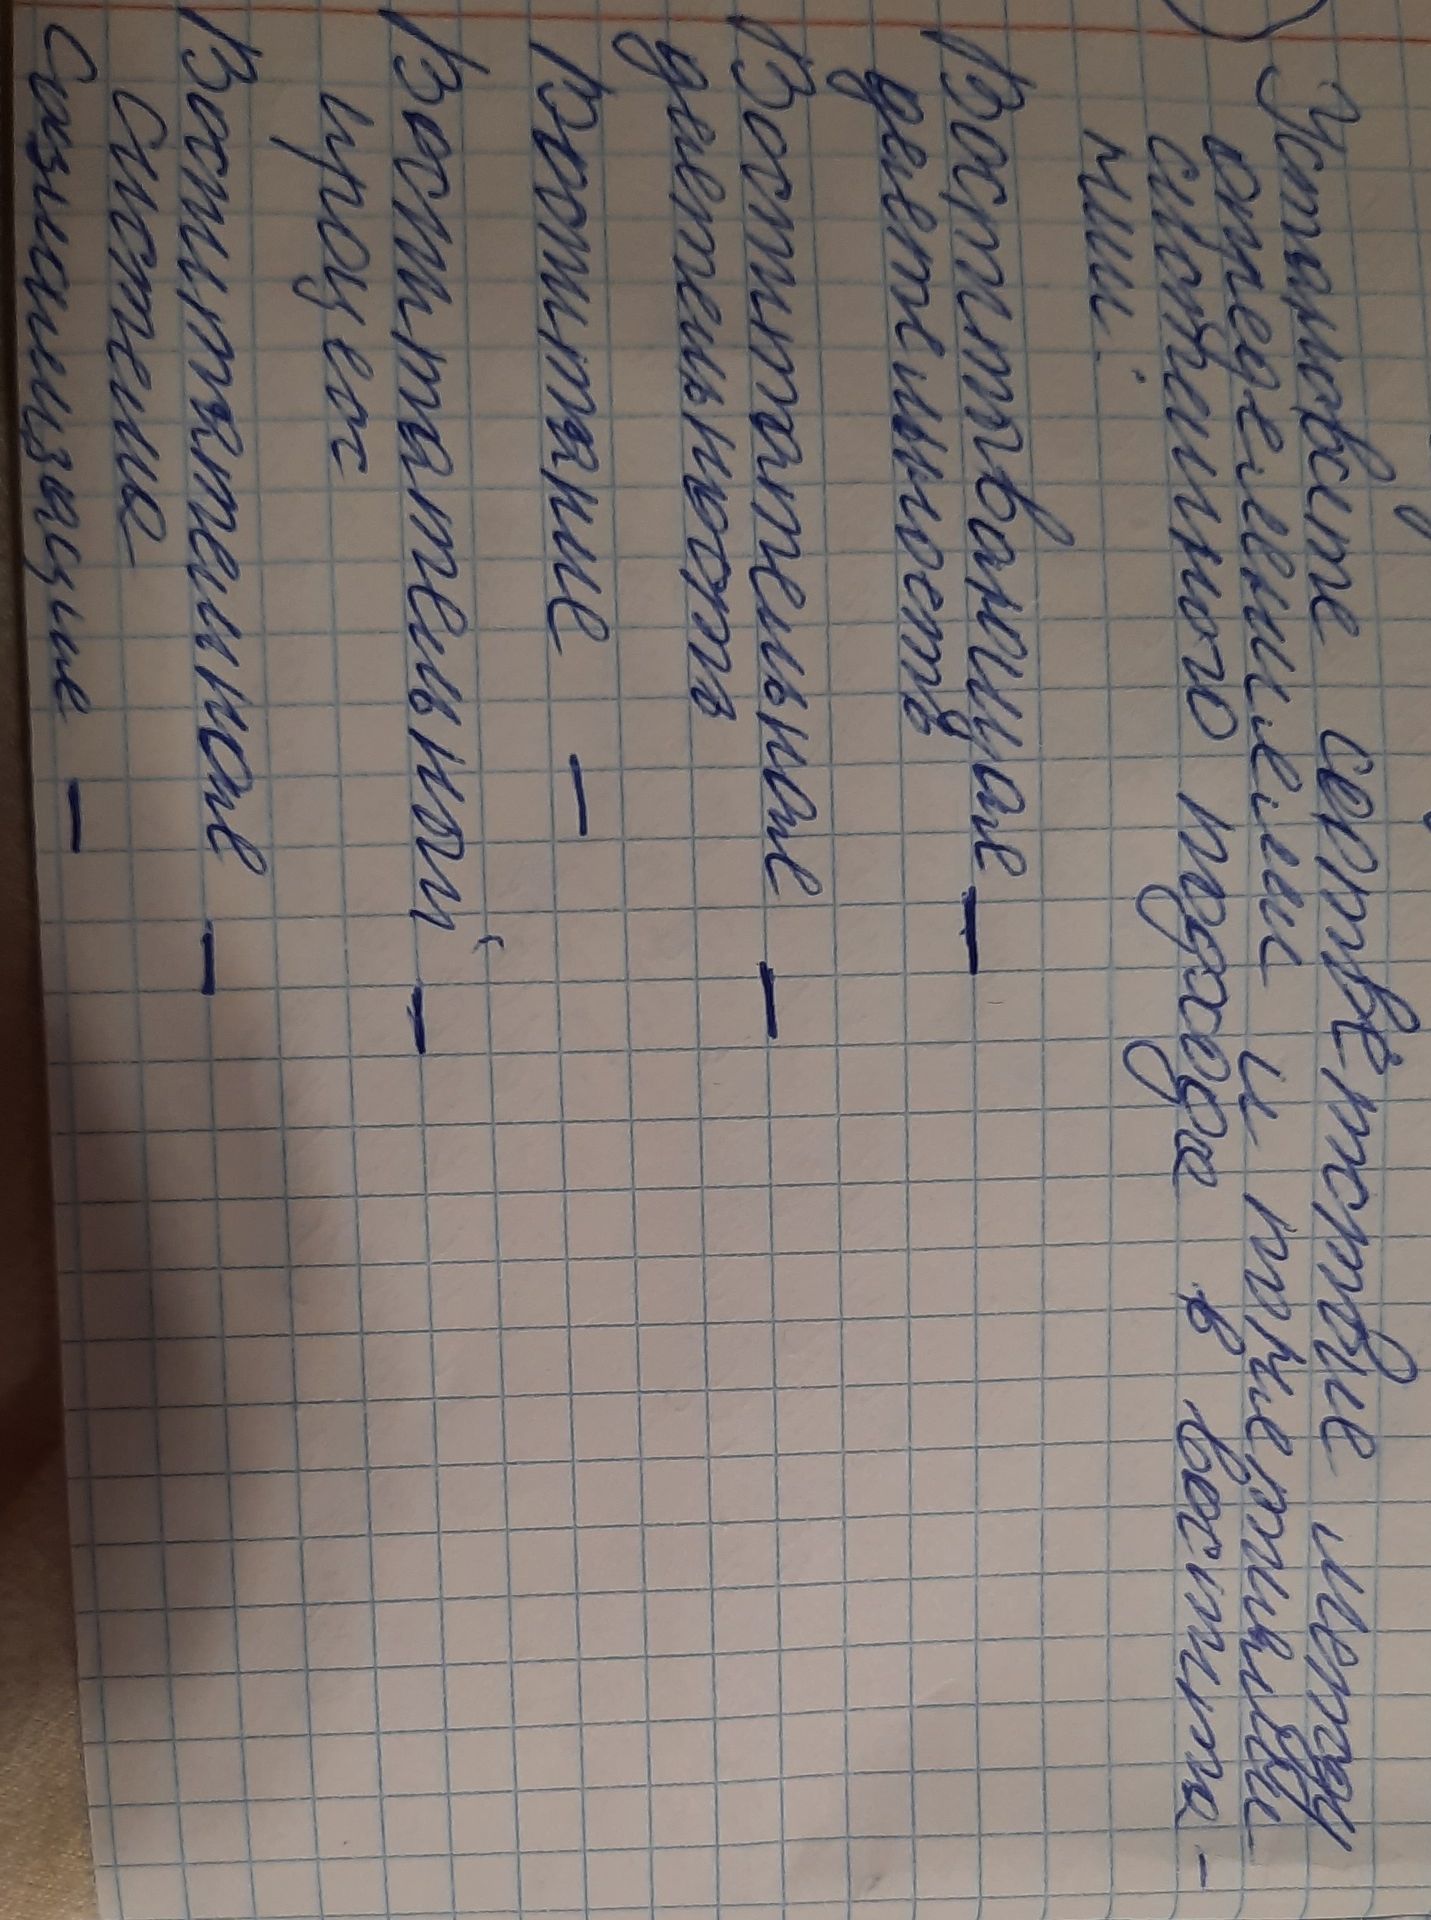 Установите соответствие между
определениями и понятиями
системного подхода в воспита-
нии.
Воспитывающая —
деятельность
Воспитательная —
деятельность
Воспитание —
Воспитательный —
процесс
Воспитательная —
система
Социализация —